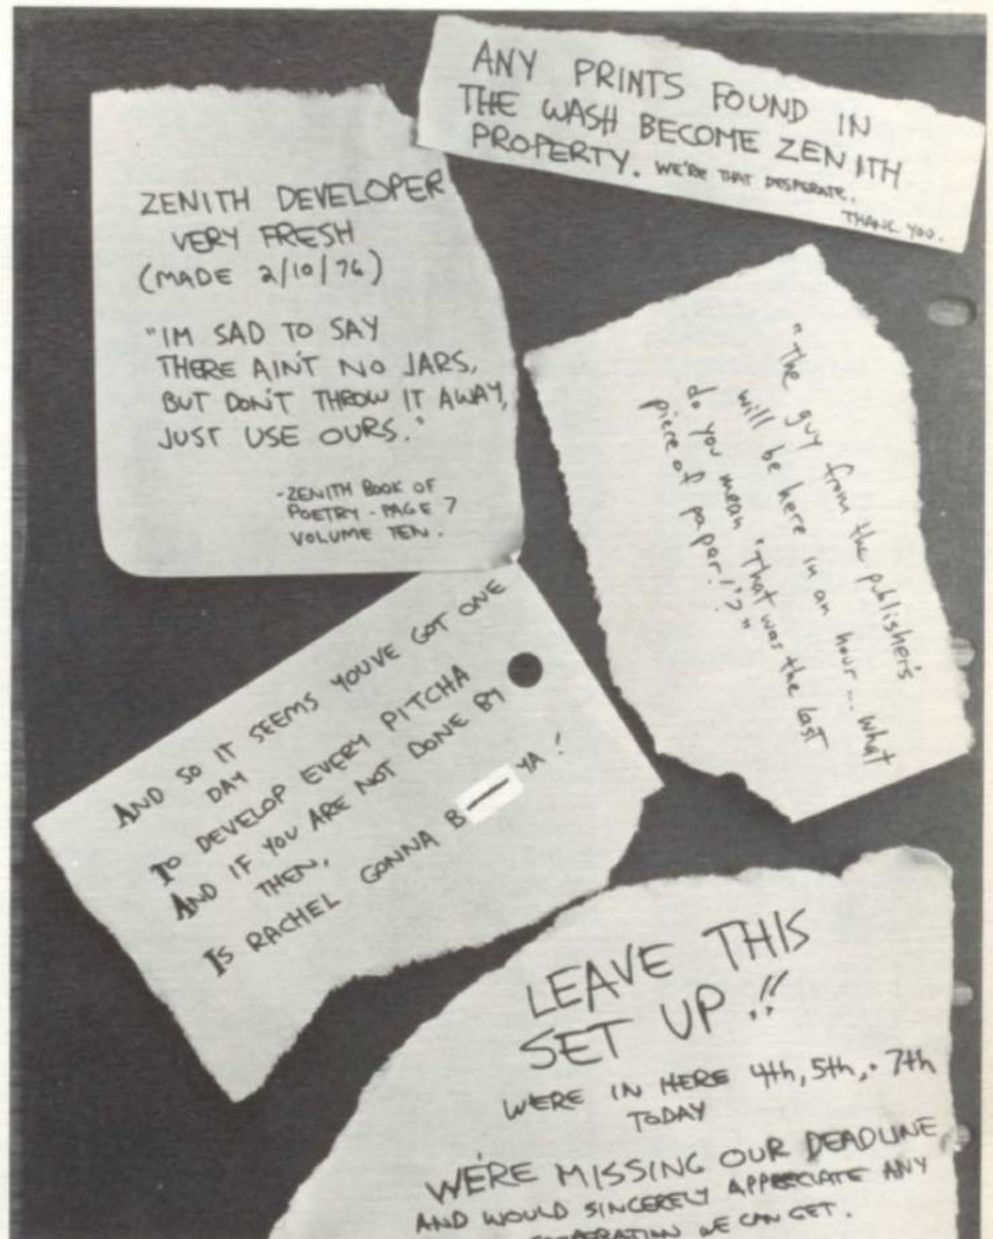 ANY PRINTS FOUND IN
THE WASH BECOME ZENITH
PROPERTY. WE'RE THAT DESPERATE.
THANK YOU.
ZENITH DEVELOPER
VERY FRESH
(MADE 2/10/76)
"IM SAD TO SAY
THERE AIN'T NO JARS,
BUT DON'T THROW IT AWAY,
JUST USE OURS."
-ZENITH BOOK OF
POETRY - PAGE 7
VOLUME TEN.
"The guy from the publisher's
will be here in an hour... what
do you mean 'That was the last
piece of paper!'?"
AND SO IT SEEMS YOUVE GOT ONE
DAY
TO DEVELOP EVERY PITCHA
AND IF YOU ARE NOT DONE BY
THEN,
IS RACHEL GONNA B— YA!
LEAVE THIS
SET UP!!
WERE IN HERE 4th, 5th, + 7th
TODAY
WE'RE MISSING OUR DEADLINE
AND WOULD SINCERELY APPRECIATE ANY
WE CAN GET.